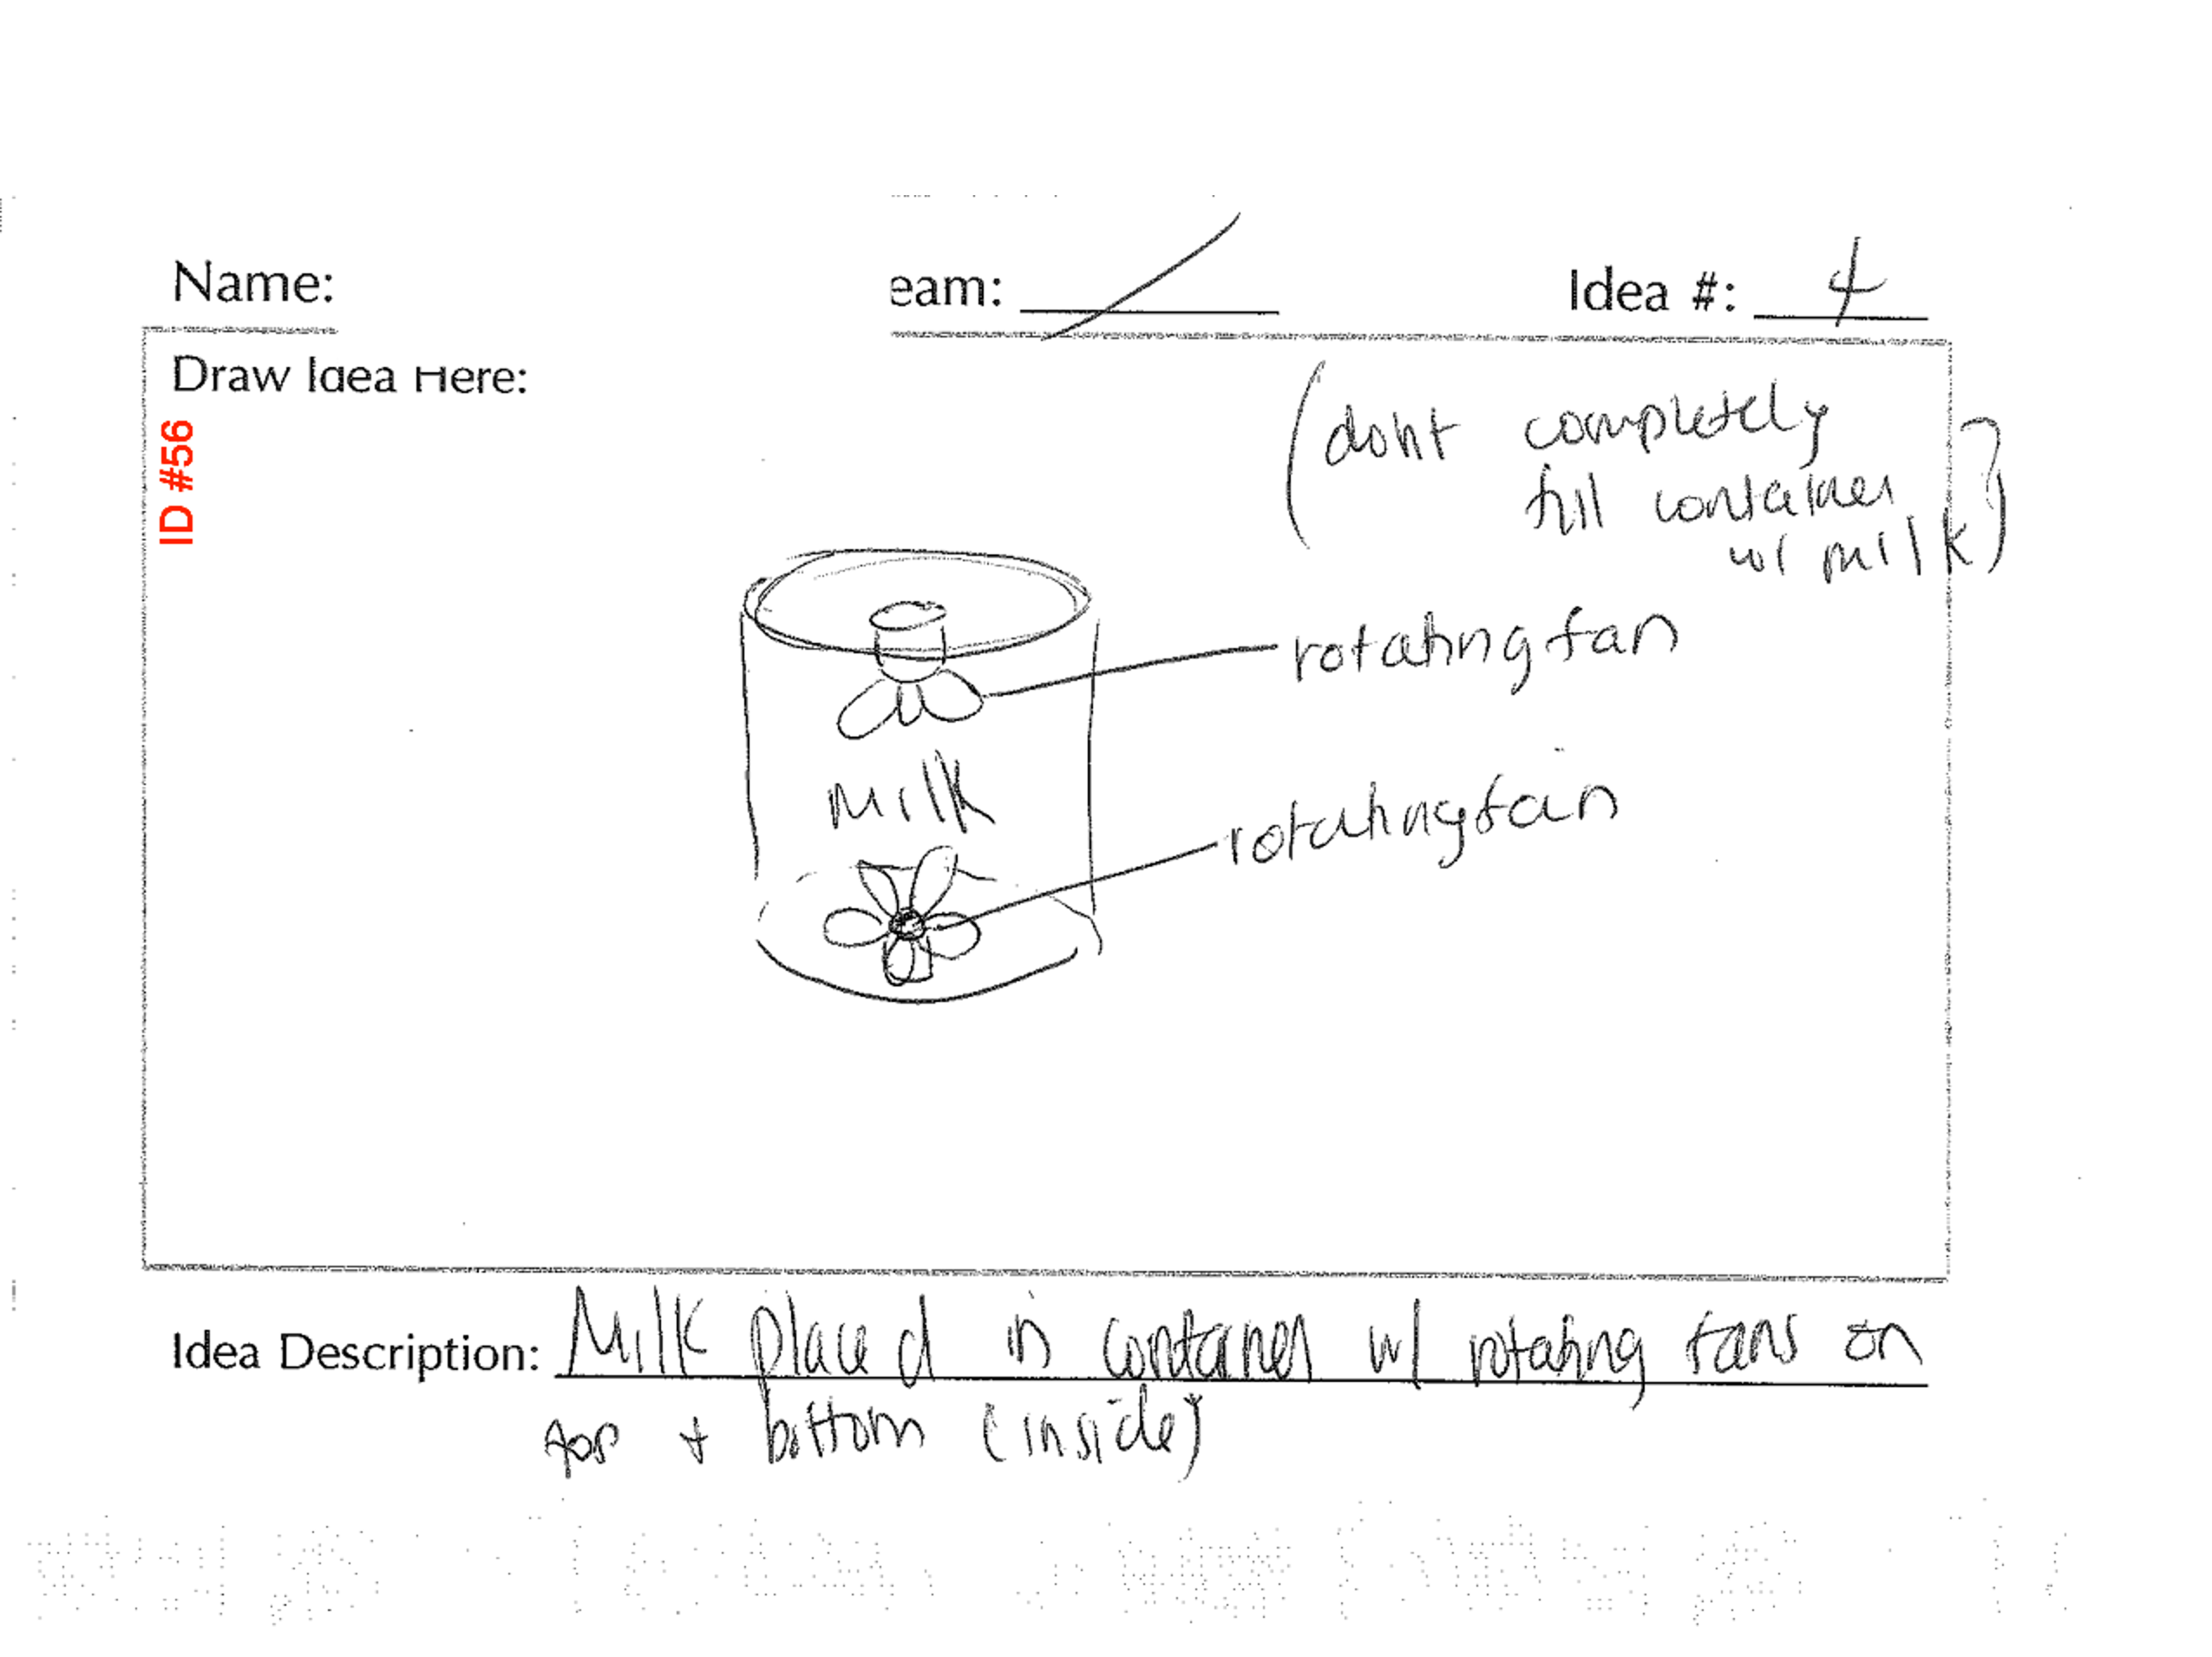 Name:
eam:
Idea #: 4
Draw Idea Here:
ID #56
(dont completely
fill container
w/ milk)
rotating fan
milk
rotating fan
Idea Description: Milk placed in container w/ rotating fans on
top + bottom (inside)